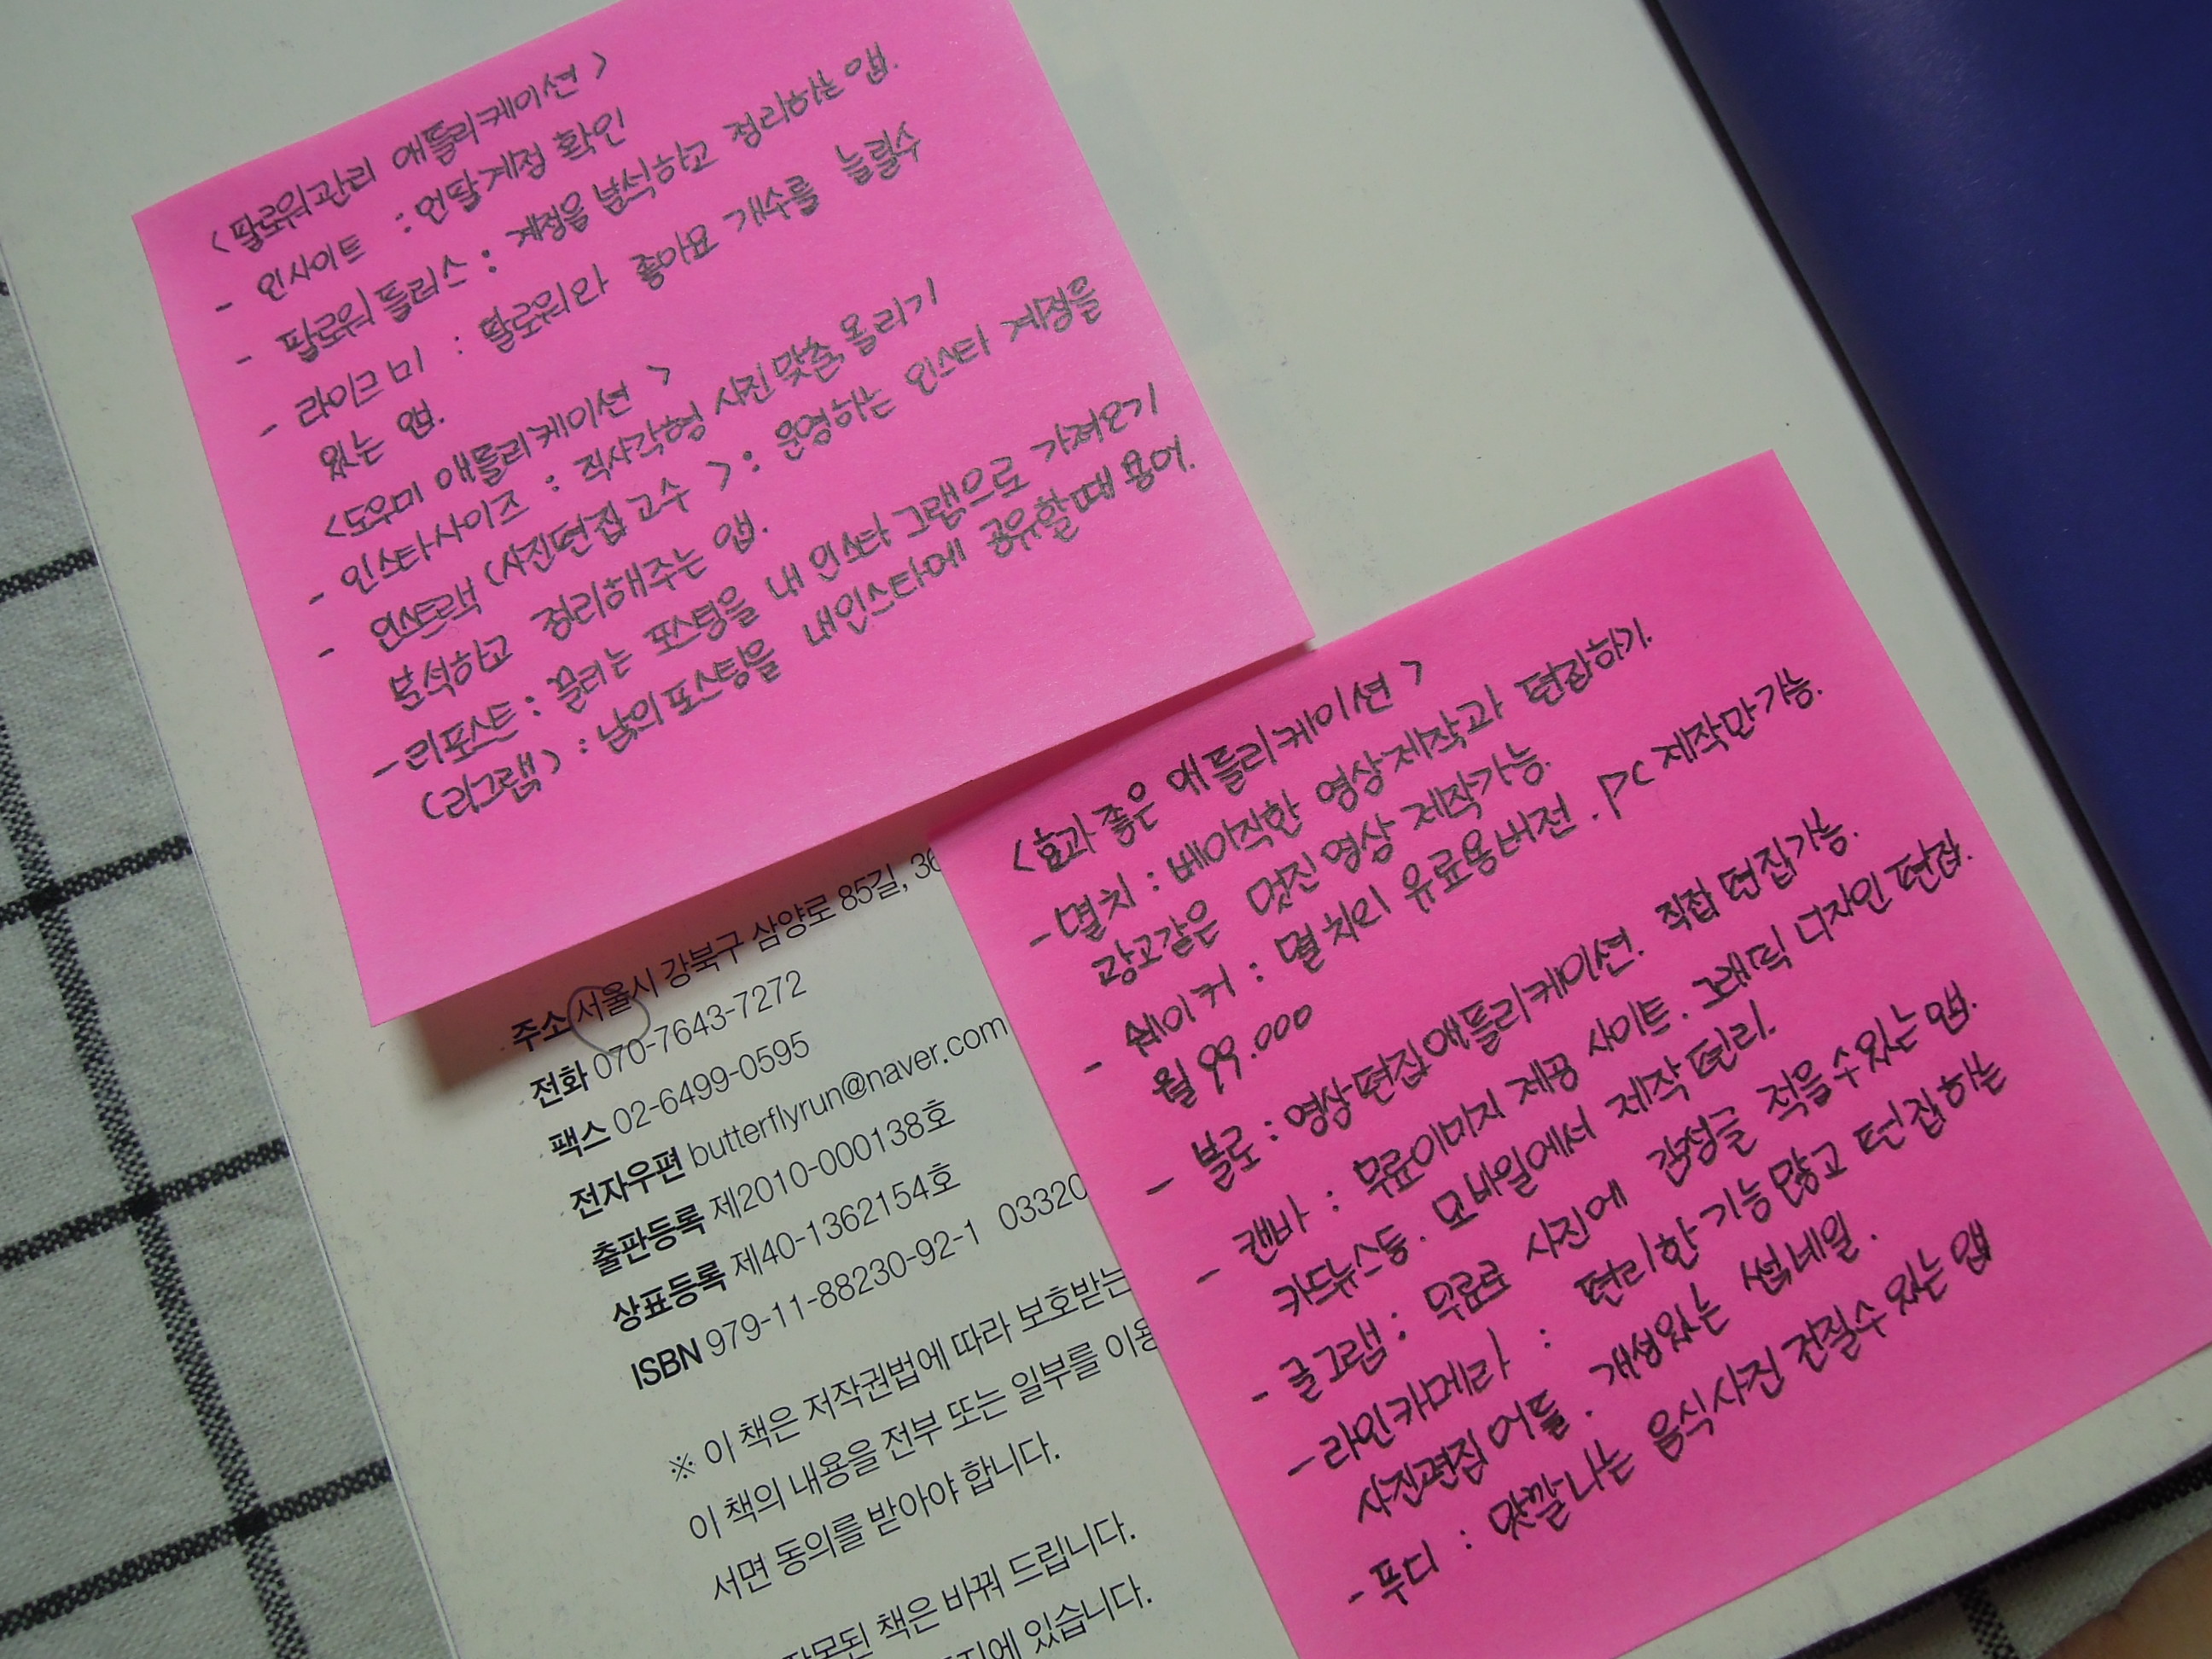 <팔로워관리 애플리케이션>
- 인사이트 : 언팔계정 확인
- 팔로워 플러스 : 계정을 분석하고 정리하는 앱.
- 라이크 미 : 팔로워와 좋아요 개수를 늘릴수
있는 앱.
<도우미 애플리케이션>
- 인스타사이즈 : 직사각형 사진 맞춤, 올리기
- 인스트랙 (사진편집 고수 > : 운영하는 인스타 계정을
분석하고 정리해주는 앱.
- 리포스트 : 끌리는 포스팅을 내 인스타 그램으로 가져오기
(리그램) : 남의 포스팅을 내인스타에 공유할때 용어.
<효과 좋은 애플리케이션>
- 멸치 : 베이직한 영상제작과 편집하기.
광고같은 멋진 영상 제작가능.
- 쉐이커 : 멸치의 유료용버전. PC 제작만 가능.
월 99.000
- 블로 : 영상편집애플리케이션. 직접 편집가능.
- 캔바 : 무료이미지 제공 사이트. 그래픽 디자인 편집.
카드뉴스등. 모바일에서 제작 편리.
- 글그램 : 무료로 사진에 감성글 적을수있는 앱.
- 라인카메라 : 편리한 기능많고 편집하는
사진편집어플. 개성있는 썸네일.
- 푸디 : 맛깔나는 음식사진 건질수 있는 앱
주소 서울시 강북구 삼양로 85길, 36
전화 070-7643-7272
팩스 02-6499-0595
전자우편 butterflyrun@naver.com
출판등록 제2010-000138호
상표등록 제40-1362154호
ISBN 979-11-88230-92-1 03320
※ 이 책은 저작권법에 따라 보호받는
이 책의 내용을 전부 또는 일부를 이용
서면 동의를 받아야 합니다.
잘못된 책은 바꿔 드립니다.
있습니다.